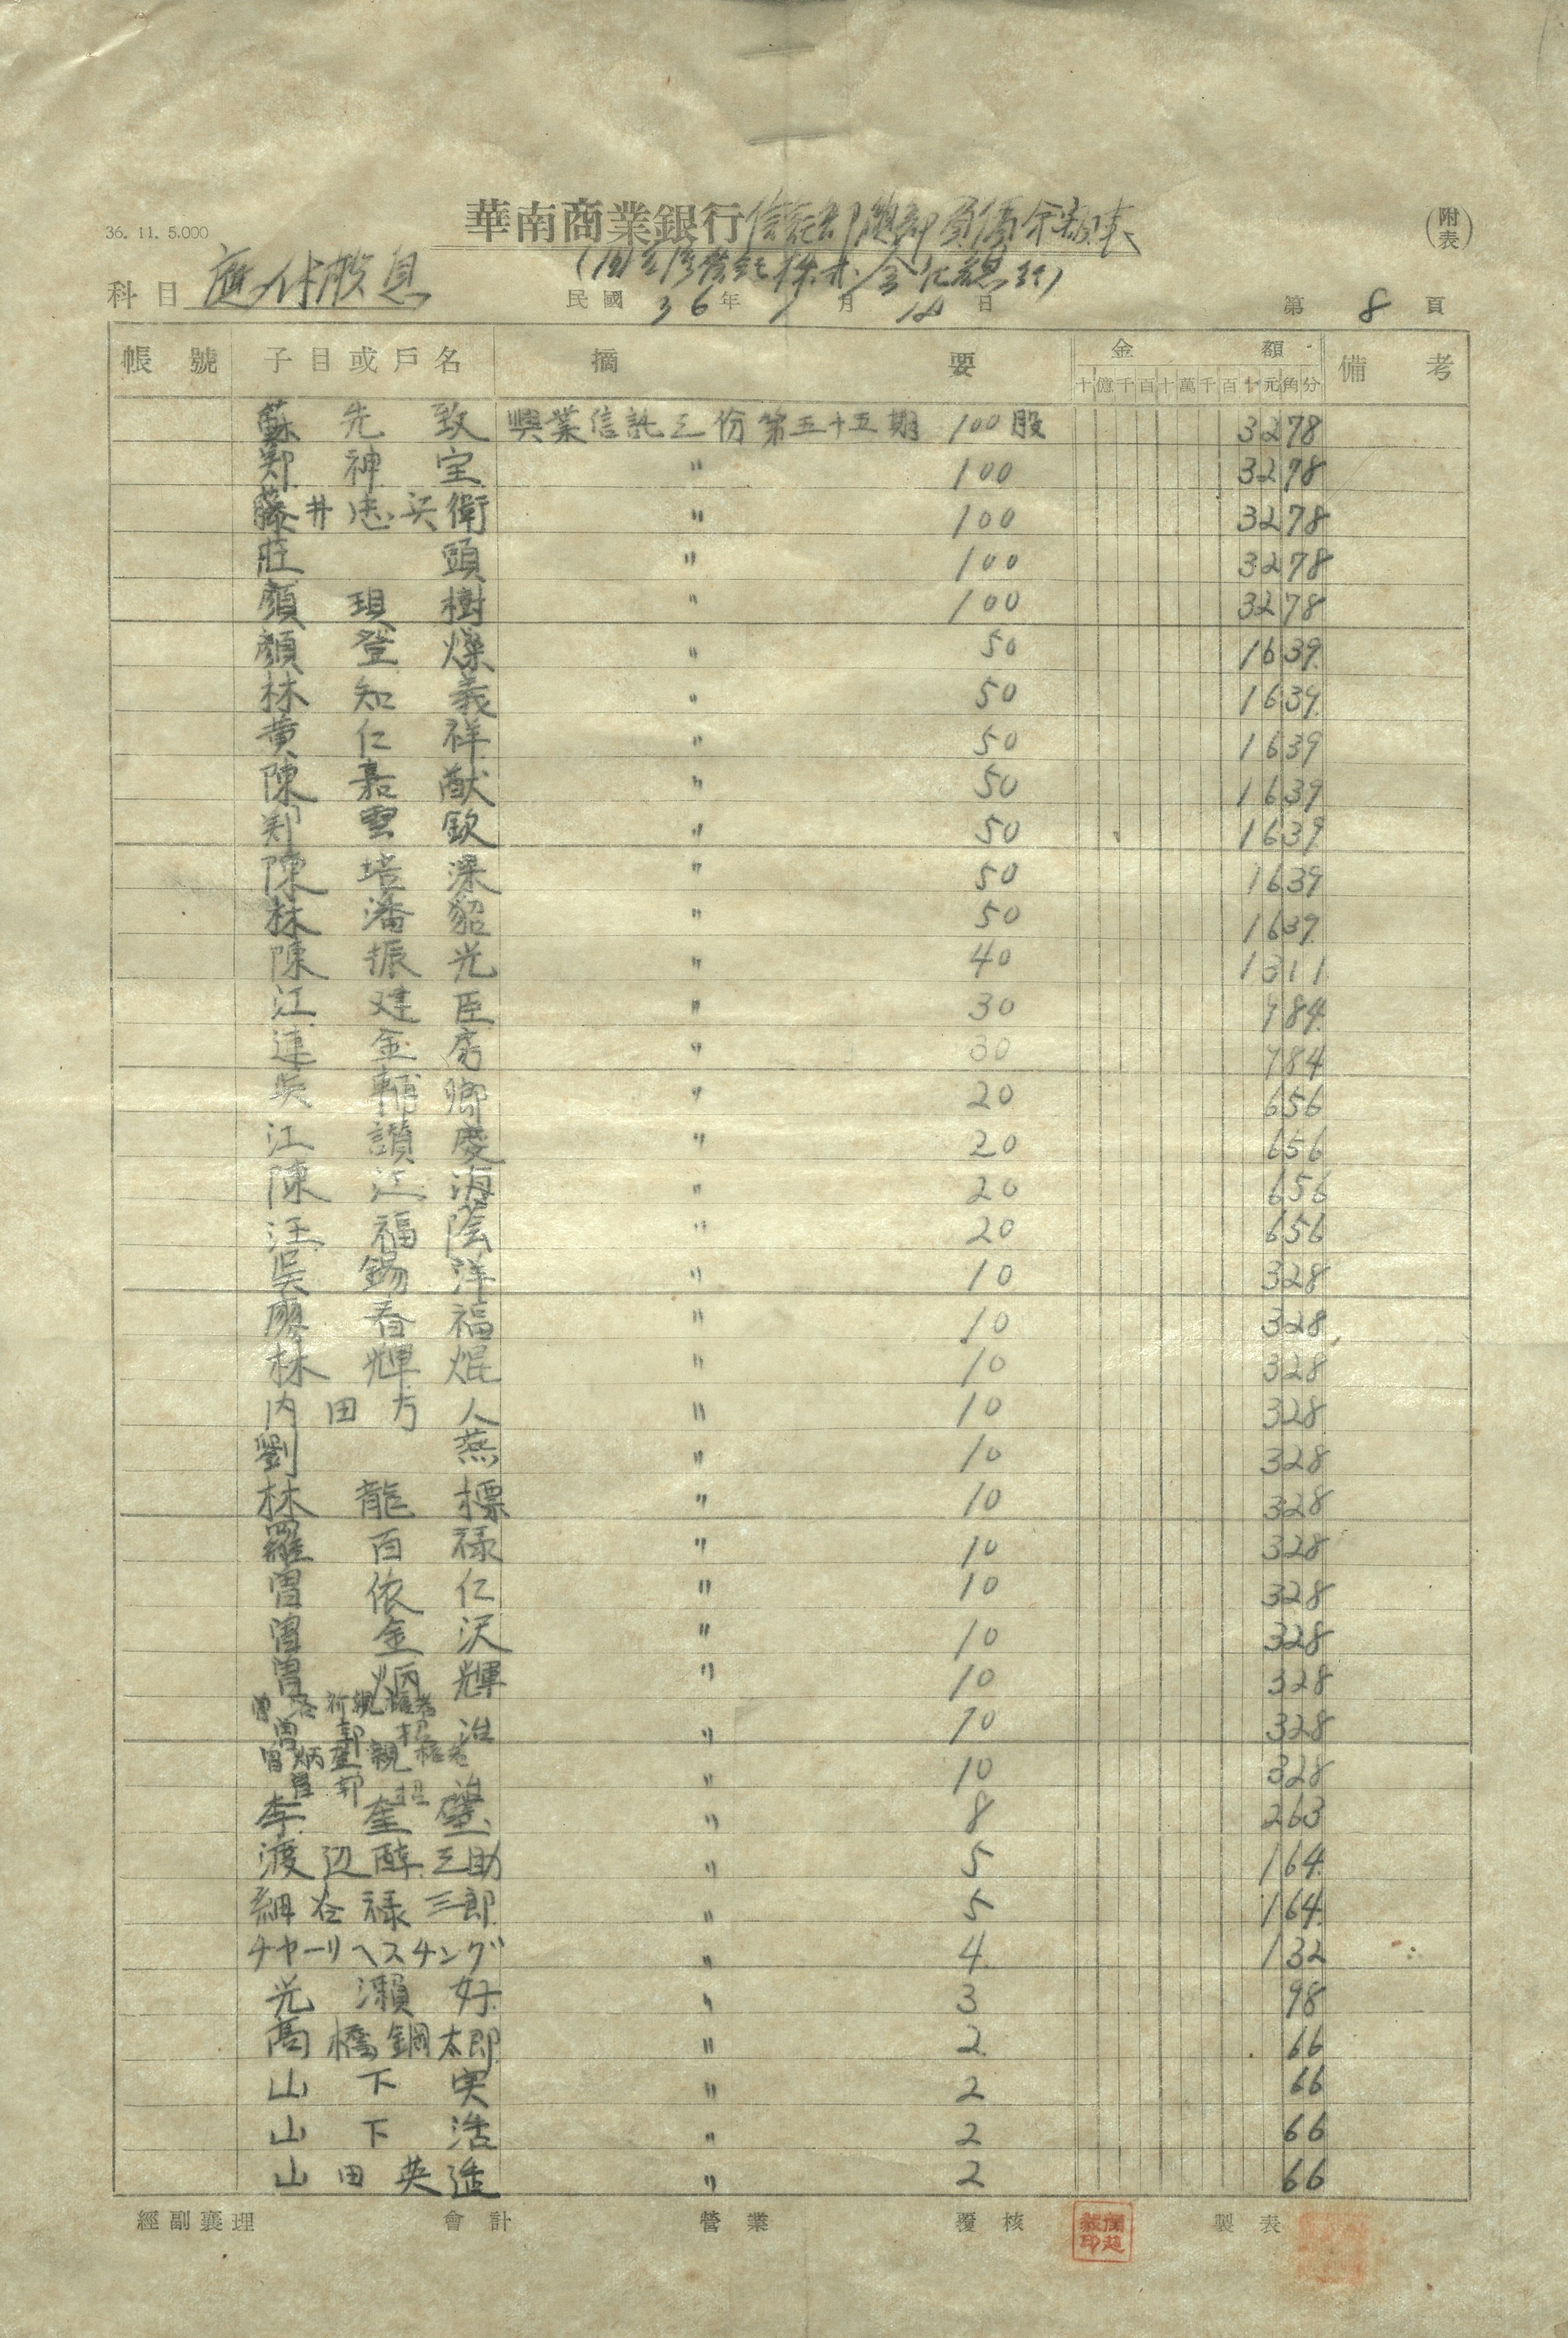 36. 11. 5.000
華南商業銀行信託部總部負債余額表
(附表)
科目 應付股息
民國 36年 月 日
第 8 頁
帳號 子目或戶名 摘要 金額 備考
十億千百十萬千百十元角分
蘇先致 興業信託三份第五十五期 100股 3278
鄭神宝 〃 100 3278
藤井忠兵衛 〃 100 3278
莊頭 〃 100 3278
顏現樹 〃 100 3278
顏登燦 〃 50 1639
林知義 〃 50 1639
黄仁祥 〃 50 1639
陳嘉猷 〃 50 1639
鄭雲欽 〃 50 1639
陳培深 〃 50 1639
林潘貂 〃 50 1639
陳振光 〃 40 1311
江建臣 〃 30 984
連金房 〃 30 984
吳輔卿 〃 20 656
江讃慶 〃 20 656
陳江海 〃 20 656
汪福蔭 〃 20 656
吳錫洋 〃 10 328
廖春福 〃 10 328
林輝焜 〃 10 328
内田方人 〃 10 328
劉燕 〃 10 328
林龍標 〃 10 328
羅百禄 〃 10 328
曾依仁 〃 10 328
曾金沢 〃 10 328
曾炳輝 〃 10 328
曾 親権者
曾郭招治 〃 10 328
曾炳奎親権者
曾郭招治 〃 10 328
李奎璧 〃 8 263
渡辺醇三助 〃 5 164
細谷禄三郎 〃 5 164
チャーリヘスチング 〃 4 132
光瀬好 〃 3 98
髙橋鋼太郎 〃 2 66
山下実 〃 2 66
山下浩 〃 2 66
山田英造 〃 2 66
經副襄理 會計 營業 覆核 製表